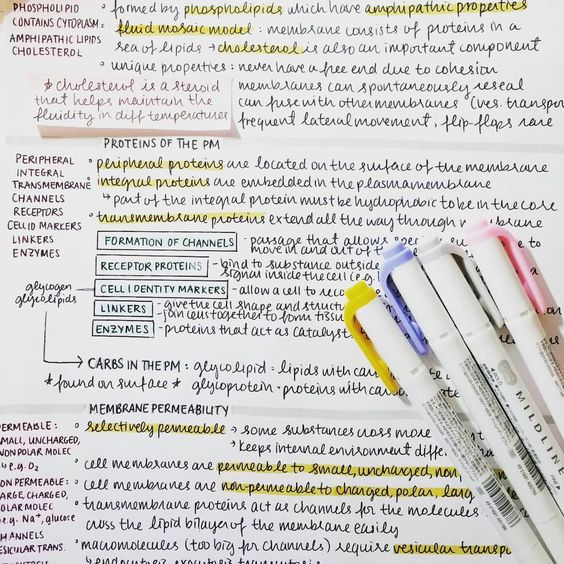 PHOSPHOLIPID
CONTAINS CYTOPLASM
AMPHIPATHIC LIPIDS
CHOLESTEROL
° formed by phospholipids which have amphipathic properties
° fluid mosaic model : membrane consists of proteins in a
sea of lipids → cholesterol is also an important component
° unique properties : never have a free end due to cohesion
membranes can spontaneously reseal
can fuse with other membranes (ves. transpor
frequent lateral movement, flip-flops rare
* cholesterol is a steroid
that helps maintain the
fluidity in diff temperatures
PROTEINS OF THE PM
PERIPHERAL
INTEGRAL
TRANSMEMBRANE
CHANNELS
RECEPTORS
CELL ID MARKERS
LINKERS
ENZYMES
° peripheral proteins are located on the surface of the membrane
° integral proteins are embedded in the plasma membrane
↳ part of the integral protein must be hydrophobic to be in the core
° transmembrane proteins extend all the way through membrane
FORMATION OF CHANNELS - passage that allows to
move in and out of
RECEPTOR PROTEINS - bind to substance outside
signal inside the cell (e.g.
glycogen
glycolipids
CELL IDENTITY MARKERS - allow a cell to
LINKERS - give the cell shape and
join cells together to form
ENZYMES - proteins that act as
→ CARBS IN THE PM : glycolipid = lipids with
*found on surface* glycoprotein = proteins with
MEMBRANE PERMEABILITY
PERMEABLE :
SMALL, UNCHARGED,
NONPOLAR MOLEC
↳ e.g. O₂
NON PERMEABLE :
LARGE, CHARGED,
POLAR MOLEC
e.g. Na⁺, glucose
CHANNELS
VESICULAR TRANS.
° selectively permeable → some substances cross more
↳ keeps internal environment
° cell membranes are permeable to small, uncharged,
° cell membranes are non-permeable to charged, polar,
° transmembrane proteins act as channels for the molecules
cross the lipid bilayer of the membrane easily
° macromolecules (too big for channels) require vesicular
MILDLINE